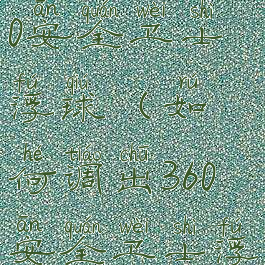 ān quán wèi shì
0安全卫士
fú qiú rú
浮球（如
hé tiáo chū
何调出360
ān quán wèi shì fú
安全卫士浮